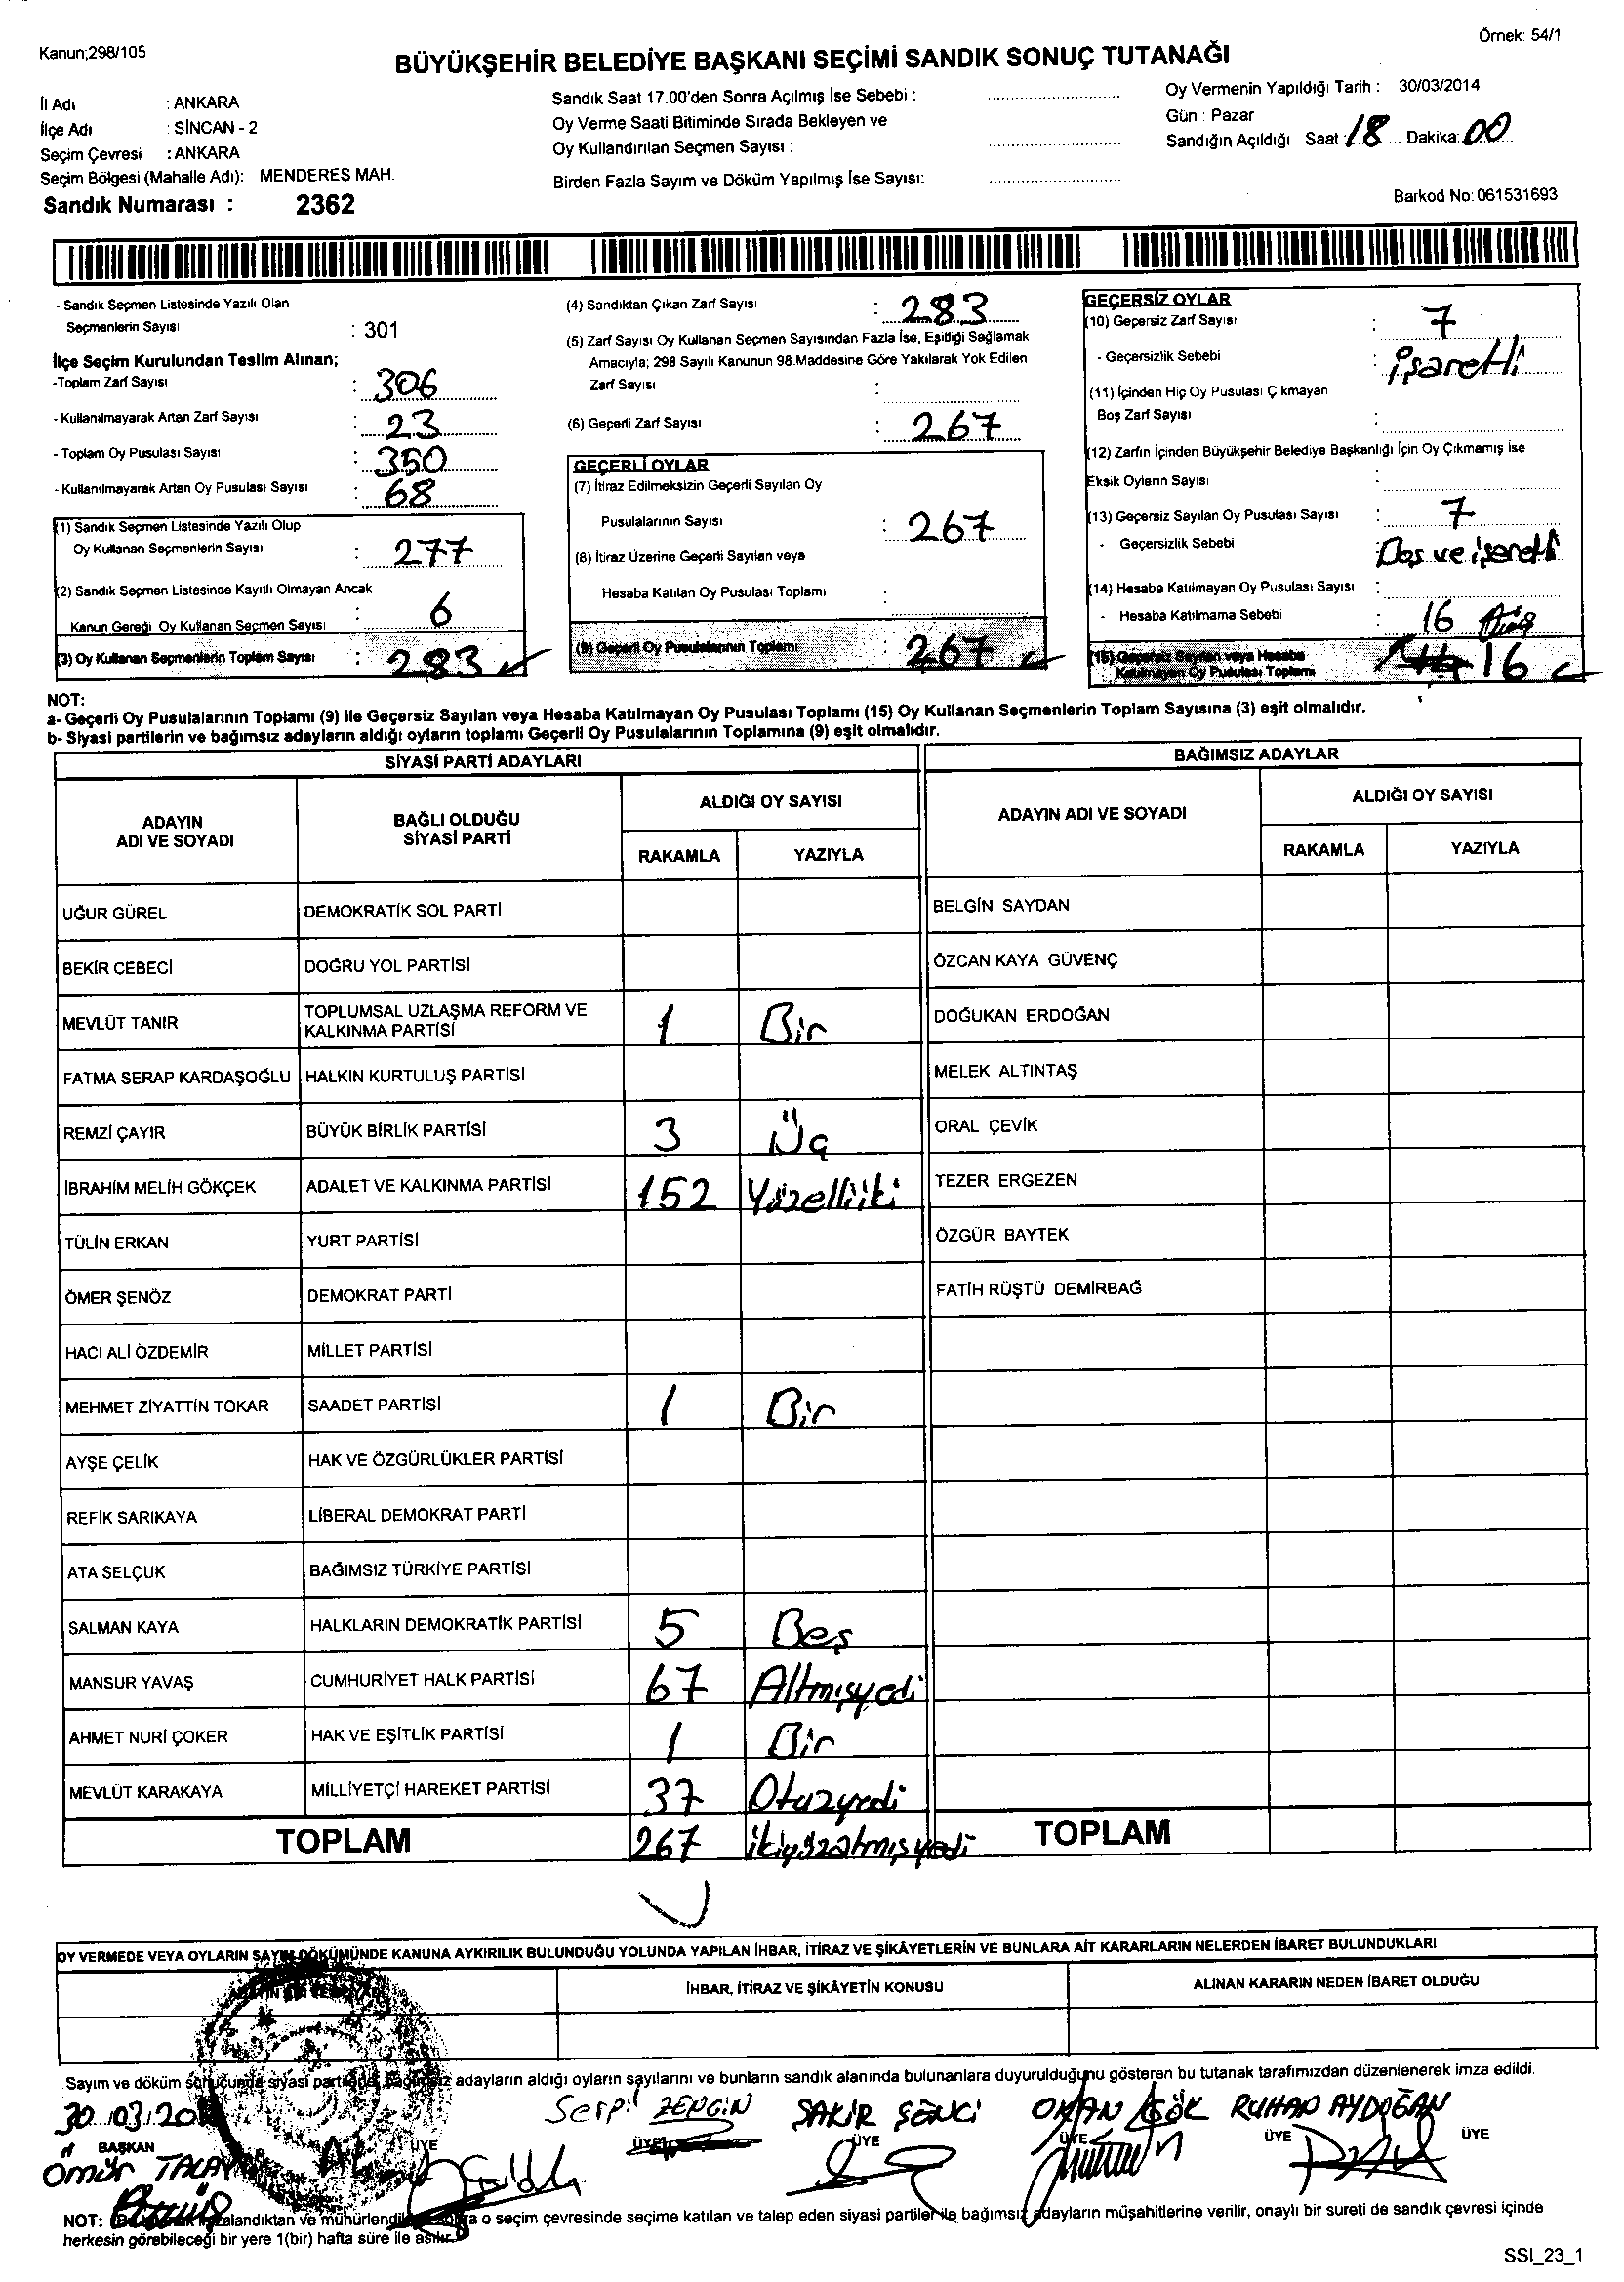 Kanun;298/105
Örnek: 54/1
BÜYÜKŞEHİR BELEDİYE BAŞKANI SEÇİMİ SANDIK SONUÇ TUTANAĞI
İl Adı : ANKARA
İlçe Adı : SİNCAN - 2
Seçim Çevresi : ANKARA
Seçim Bölgesi (Mahalle Adı): MENDERES MAH.
Sandık Numarası : 2362
Sandık Saat 17.00'den Sonra Açılmış İse Sebebi :
Oy Verme Saati Bitiminde Sırada Bekleyen ve
Oy Kullandırılan Seçmen Sayısı :
Birden Fazla Sayım ve Döküm Yapılmış İse Sayısı:
Oy Vermenin Yapıldığı Tarih : 30/03/2014
Gün : Pazar
Sandığın Açıldığı Saat : 18 Dakika: 00
Barkod No: 061531693
- Sandık Seçmen Listesinde Yazılı Olan
Seçmenlerin Sayısı : 301
İlçe Seçim Kurulundan Teslim Alınan;
-Toplam Zarf Sayısı : 306
- Kullanılmayarak Artan Zarf Sayısı : 23
- Toplam Oy Pusulası Sayısı : 350
- Kullanılmayarak Artan Oy Pusulası Sayısı : 68
(1) Sandık Seçmen Listesinde Yazılı Olup
Oy Kullanan Seçmenlerin Sayısı : 277
(2) Sandık Seçmen Listesinde Kayıtlı Olmayan Ancak
Kanun Gereği Oy Kullanan Seçmen Sayısı : 6
(3) Oy Kullanan Seçmenlerin Toplam Sayısı : 283
(4) Sandıktan Çıkan Zarf Sayısı : 283
(5) Zarf Sayısı Oy Kullanan Seçmen Sayısından Fazla İse, Eşitliği Sağlamak
Amacıyla; 298 Sayılı Kanunun 98.Maddesine Göre Yakılarak Yok Edilen
Zarf Sayısı :
(6) Geçerli Zarf Sayısı : 267
GEÇERLİ OYLAR
(7) İtiraz Edilmeksizin Geçerli Sayılan Oy
Pusulalarının Sayısı : 267
(8) İtiraz Üzerine Geçerli Sayılan veya
Hesaba Katılan Oy Pusulası Toplamı :
(9) Geçerli Oy Pusulalarının Toplamı : 267
GEÇERSİZ OYLAR
(10) Geçersiz Zarf Sayısı : 7
- Geçersizlik Sebebi : işaretli
(11) İçinden Hiç Oy Pusulası Çıkmayan
Boş Zarf Sayısı :
(12) Zarfın İçinden Büyükşehir Belediye Başkanlığı İçin Oy Çıkmamış İse
Eksik Oyların Sayısı :
(13) Geçersiz Sayılan Oy Pusulası Sayısı : 7
- Geçersizlik Sebebi : Boş ve işaretli
(14) Hesaba Katılmayan Oy Pusulası Sayısı :
- Hesaba Katılmama Sebebi : 16
(15) Geçersiz Sayılan veya Hesaba
Katılmayan Oy Pusulası Toplamı 16
NOT:
a- Geçerli Oy Pusulalarının Toplamı (9) ile Geçersiz Sayılan veya Hesaba Katılmayan Oy Pusulası Toplamı (15) Oy Kullanan Seçmenlerin Toplam Sayısına (3) eşit olmalıdır.
b- Siyasi partilerin ve bağımsız adayların aldığı oyların toplamı Geçerli Oy Pusulalarının Toplamına (9) eşit olmalıdır.
SİYASİ PARTİ ADAYLARI
ADAYIN ADI VE SOYADI BAĞLI OLDUĞU SİYASİ PARTİ ALDIĞI OY SAYISI
RAKAMLA YAZIYLA
UĞUR GÜREL DEMOKRATİK SOL PARTİ
BEKİR CEBECİ DOĞRU YOL PARTİSİ
MEVLÜT TANIR TOPLUMSAL UZLAŞMA REFORM VE KALKINMA PARTİSİ 1 Bir
FATMA SERAP KARDAŞOĞLU HALKIN KURTULUŞ PARTİSİ
REMZİ ÇAYIR BÜYÜK BİRLİK PARTİSİ 3 Üç
İBRAHİM MELİH GÖKÇEK ADALET VE KALKINMA PARTİSİ 152 Yüzelliiki
TÜLİN ERKAN YURT PARTİSİ
ÖMER ŞENÖZ DEMOKRAT PARTİ
HACI ALİ ÖZDEMİR MİLLET PARTİSİ
MEHMET ZİYATTİN TOKAR SAADET PARTİSİ 1 Bir
AYŞE ÇELİK HAK VE ÖZGÜRLÜKLER PARTİSİ
REFİK SARIKAYA LİBERAL DEMOKRAT PARTİ
ATA SELÇUK BAĞIMSIZ TÜRKİYE PARTİSİ
SALMAN KAYA HALKLARIN DEMOKRATİK PARTİSİ 5 Beş
MANSUR YAVAŞ CUMHURİYET HALK PARTİSİ 67 Altmışyedi
AHMET NURİ ÇOKER HAK VE EŞİTLİK PARTİSİ 1 Bir
MEVLÜT KARAKAYA MİLLİYETÇİ HAREKET PARTİSİ 37 Otuzyedi
TOPLAM 267 ikiyüzatmışyedi
BAĞIMSIZ ADAYLAR
ADAYIN ADI VE SOYADI ALDIĞI OY SAYISI
RAKAMLA YAZIYLA
BELGİN SAYDAN
ÖZCAN KAYA GÜVENÇ
DOĞUKAN ERDOĞAN
MELEK ALTINTAŞ
ORAL ÇEVİK
TEZER ERGEZEN
ÖZGÜR BAYTEK
FATİH RÜŞTÜ DEMİRBAĞ
TOPLAM
OY VERMEDE VEYA OYLARIN SAYIM DÖKÜMÜNDE KANUNA AYKIRILIK BULUNDUĞU YOLUNDA YAPILAN İHBAR, İTİRAZ VE ŞİKÂYETLERİN VE BUNLARA AİT KARARLARIN NELERDEN İBARET BULUNDUKLARI
İHBAR, İTİRAZ VE ŞİKÂYETİN KONUSU ALINAN KARARIN NEDEN İBARET OLDUĞU
Sayım ve döküm sonucunda siyasi partilerin bağımsız adayların aldığı oyların sayılarını ve bunların sandık alanında bulunanlara duyurulduğunu gösteren bu tutanak tarafımızdan düzenlenerek imza edildi.
30.03.20 Serpil ZENGİN ŞAKİR ŞENCİ OKAN GÖK RUHAN AYDOĞAN
BAŞKAN ÜYE ÜYE ÜYE ÜYE ÜYE ÜYE
Ömür TALAY
NOT: alandıktan ve mühürlendi o seçim çevresinde seçime katılan ve talep eden siyasi partiler ile bağımsız adayların müşahitlerine verilir, onaylı bir sureti de sandık çevresi içinde
herkesin görebileceği bir yere 1(bir) hafta süre ile asılır.
SSI_23_1